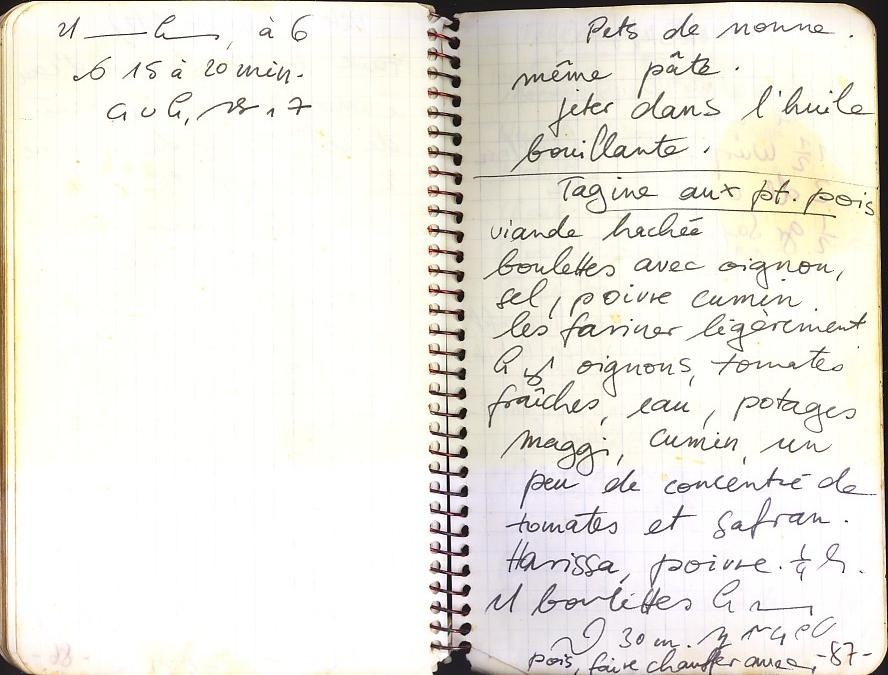 à 6
15 à 20 min.
7
Pets de nonne.
même pâte.
jeter dans l'huile
bouillante.
Tagine aux pt. pois
viande hachée
boulettes avec oignon,
sel, poivre cumin
les fariner légèrement
oignons, tomates
fraîches, eau, potages
maggi, cumin, un
peu de concentré de
tomates et safran.
Harissa, poivre. ¼ h.
boulettes
30 m.
pois, faire chauffer avec
-87-